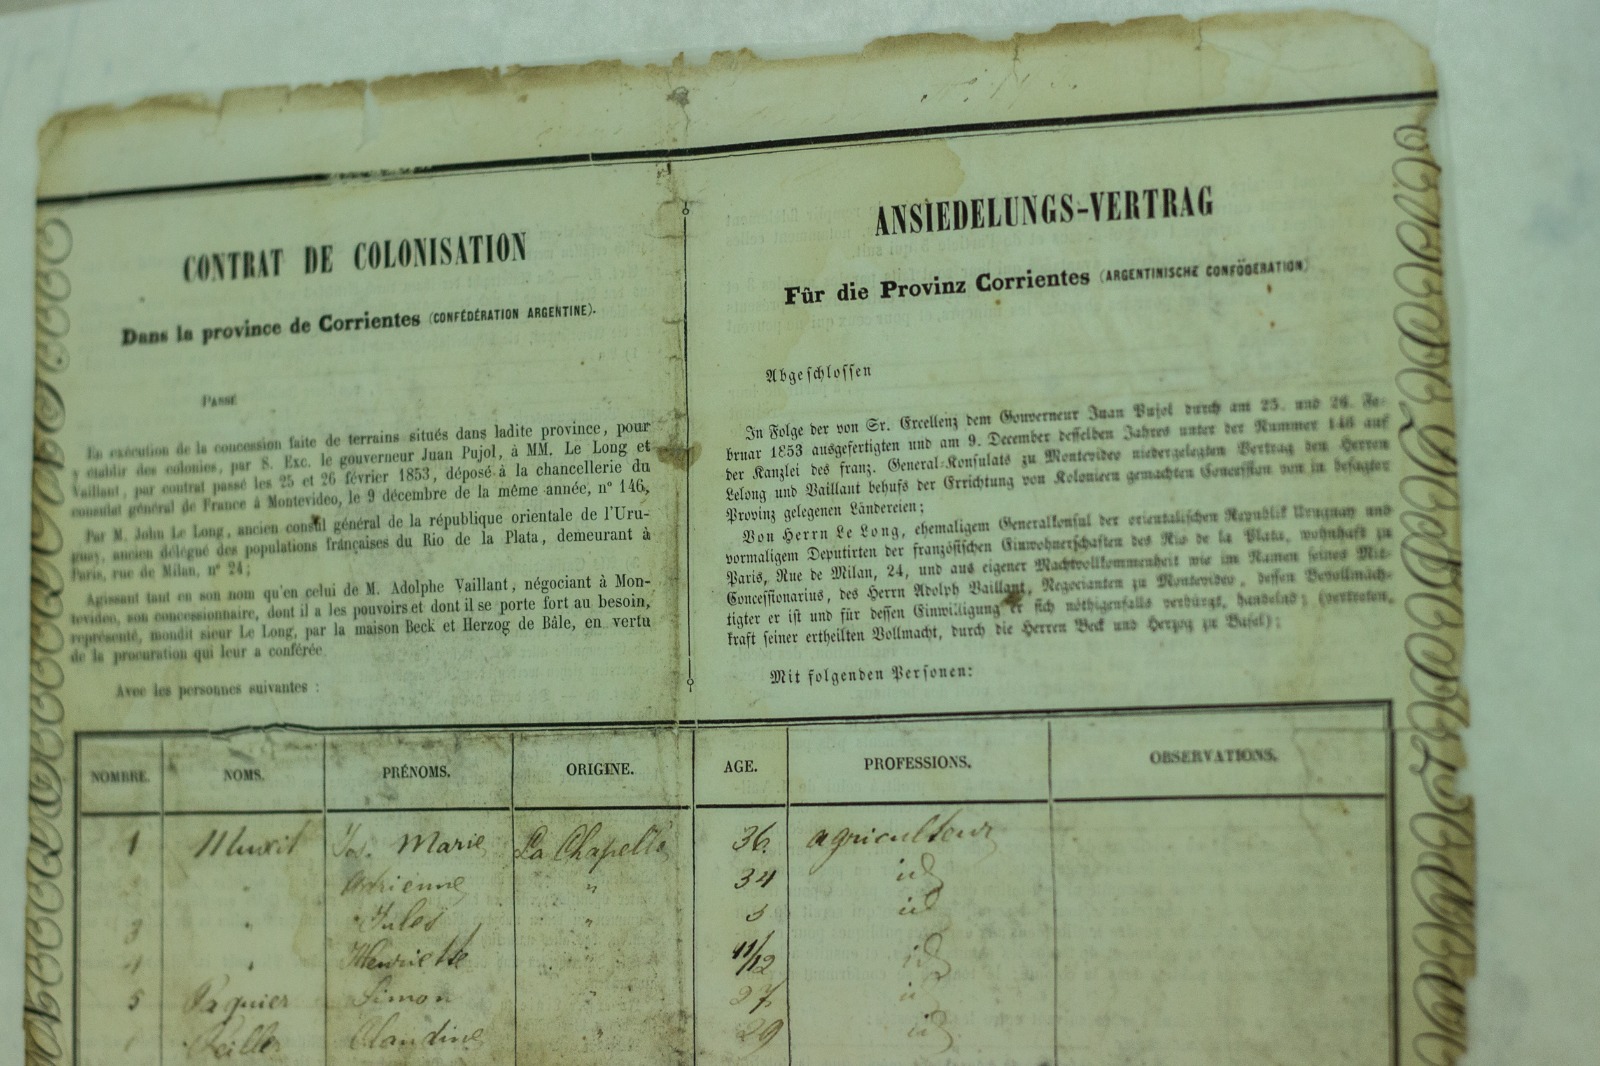 CONTRAT DE COLONISATION
Dans la province de Corrientes (CONFÉDÉRATION ARGENTINE).
PASSÉ
En exécution de la concession faite de terrains situés dans ladite province, pour
y établir des colonies, par S. Exc. le gouverneur Juan Pujol, à MM. Le Long et
Vaillant, par contrat passé les 25 et 26 février 1853, déposé à la chancellerie du
consulat général de France à Montevideo, le 9 décembre de la même année, n° 146,
Par M. John Le Long, ancien consul général de la république orientale de l'Uru-
guay, ancien délégué des populations françaises du Rio de la Plata, demeurant à
Paris, rue de Milan, n° 24;
Agissant tant en son nom qu'en celui de M. Adolphe Vaillant, négociant à Mon-
tevideo, son concessionnaire, dont il a les pouvoirs et dont il se porte fort au besoin,
représenté, mondit sieur Le Long, par la maison Beck et Herzog de Bâle, en vertu
de la procuration qui leur a conférée.
Avec les personnes suivantes :
ANSIEDELUNGS-VERTRAG
Für die Provinz Corrientes (ARGENTINISCHE CONFÖDERATION)
Abgeschlossen
In Folge der von Sr. Excellenz dem Gouverneur Juan Pujol durch am 25. und 26. Fe-
bruar 1853 ausgefertigten und am 9. December desselben Jahres unter der Nummer 146 auf
der Kanzlei des franz. General-Konsulats zu Montevideo niedergelegten Vertrag den Herren
Lelong und Vaillant behufs der Errichtung von Kolonieen gemachten Concession von in besagter
Provinz gelegenen Ländereien;
Von Herrn Le Long, ehemaligem Generalkonsul der orientalischen Republik Uruguay und
vormaligem Deputirten der französischen Einwohnerschaften des Rio de la Plata, wohnhaft zu
Paris, Rue de Milan, 24, und aus eigener Machtvollkommenheit wie im Namen seines Mit-
Concessionarius, des Herrn Adolph Vaillant, Negocianten zu Montevideo, dessen Bevollmäch-
tigter er ist und für dessen Einwilligung er sich nöthigenfalls verbürgt, handelnd; (vertreten,
kraft seiner ertheilten Vollmacht, durch die Herren Beck und Herzog zu Basel);
Mit folgenden Personen:
NOMBRE. NOMS. PRÉNOMS. ORIGINE. AGE. PROFESSIONS. OBSERVATIONS.
1 Jos. Marie La Chapelle 36 agriculteur
" Adrienne " 34 id
3 " Jules " 3 id
4 " Henriette " 11/12 id
5 Paquier Simon " 27 id
Claudine " 29 id